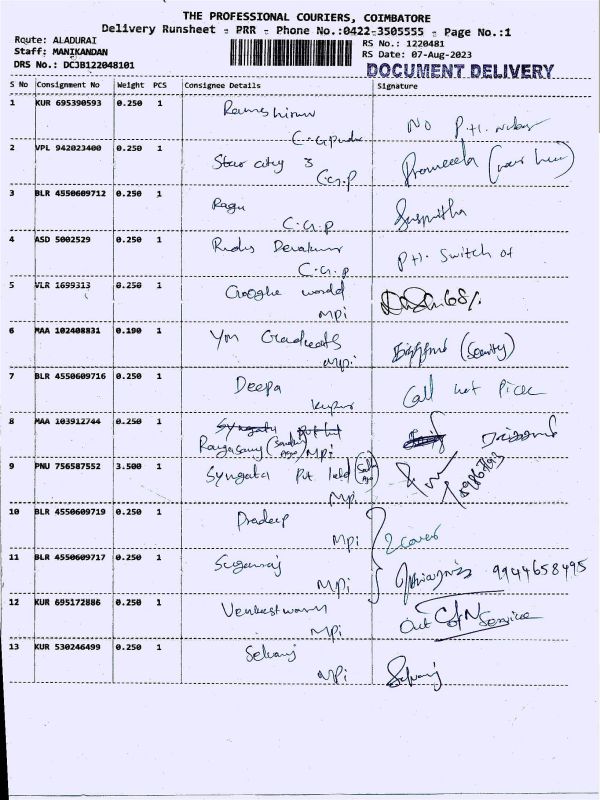 THE PROFESSIONAL COURIERS, COIMBATORE
Delivery Runsheet - PRR - Phone No.:0422-3505555 - Page No.:1
Route: ALADURAI
RS No.: 1220481
Staff: MANIKANDAN
RS Date: 07-Aug-2023
DRS No.: DCJB122048101
DOCUMENT DELIVERY
S No Consignment No Weight PCS Consignee Details Signature
1 KUR 695390593 0.250 1
No P.H.
2 VPL 942023400 0.250 1 Star city 3
C.G.P
3 BLR 4550609712 0.250 1 Ragu
C.G.P
4 ASD 5002529 0.250 1 P.H. Switch of
C.G.P
5 VLR 1699313 0.250 1 Googhe world
MPi
6 MAA 102408831 0.190 1 Ym Graduates
MPi
7 BLR 4550609716 0.250 1 Deepa Call not Pick
8 MAA 103912744 0.250 1
MPi
9 PNU 756587552 3.500 1 Syngata Pvt
MPi
10 BLR 4550609719 0.250 1 Pradeep
MPi 2 cover
11 BLR 4550609717 0.250 1 Suganraj 9944658495
MPi
12 KUR 695172886 0.250 1 Out of Service
MPi
13 KUR 530246499 0.250 1 Selvaraj
MPi Selvaraj